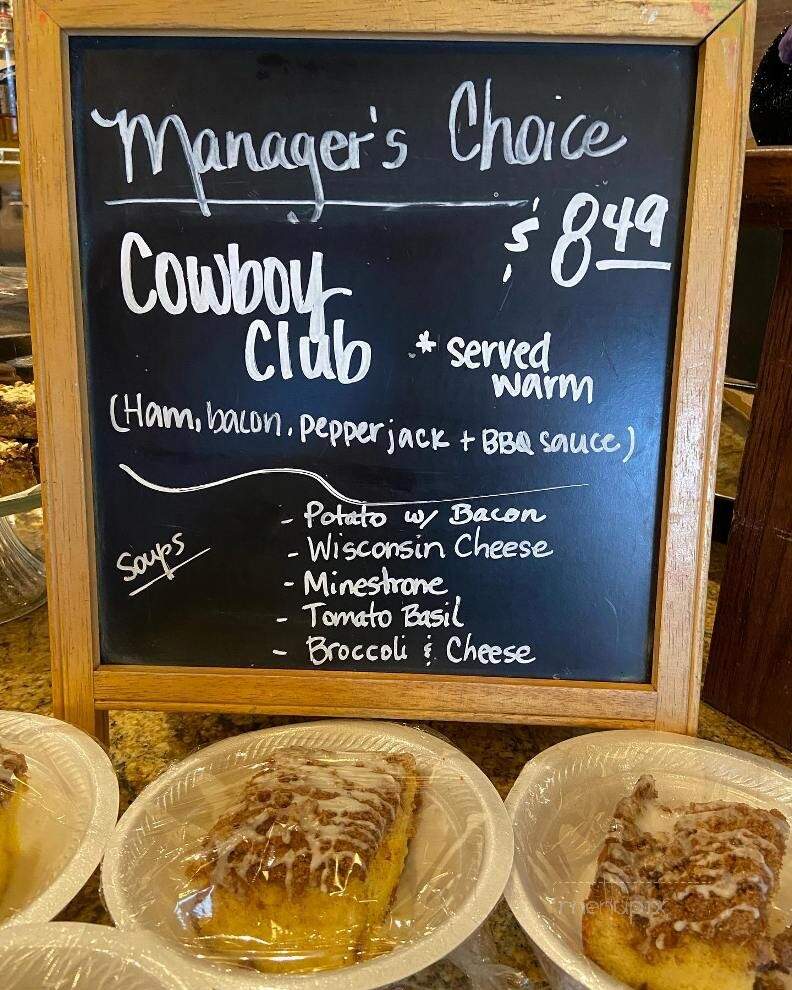 Manager's Choice
$ 8.49
Cowboy
Club
* served
warm
(Ham, bacon, pepperjack + BBQ sauce)
Soups
- Potato w/ Bacon
- Wisconsin Cheese
- Minestrone
- Tomato Basil
- Broccoli & Cheese
menupix